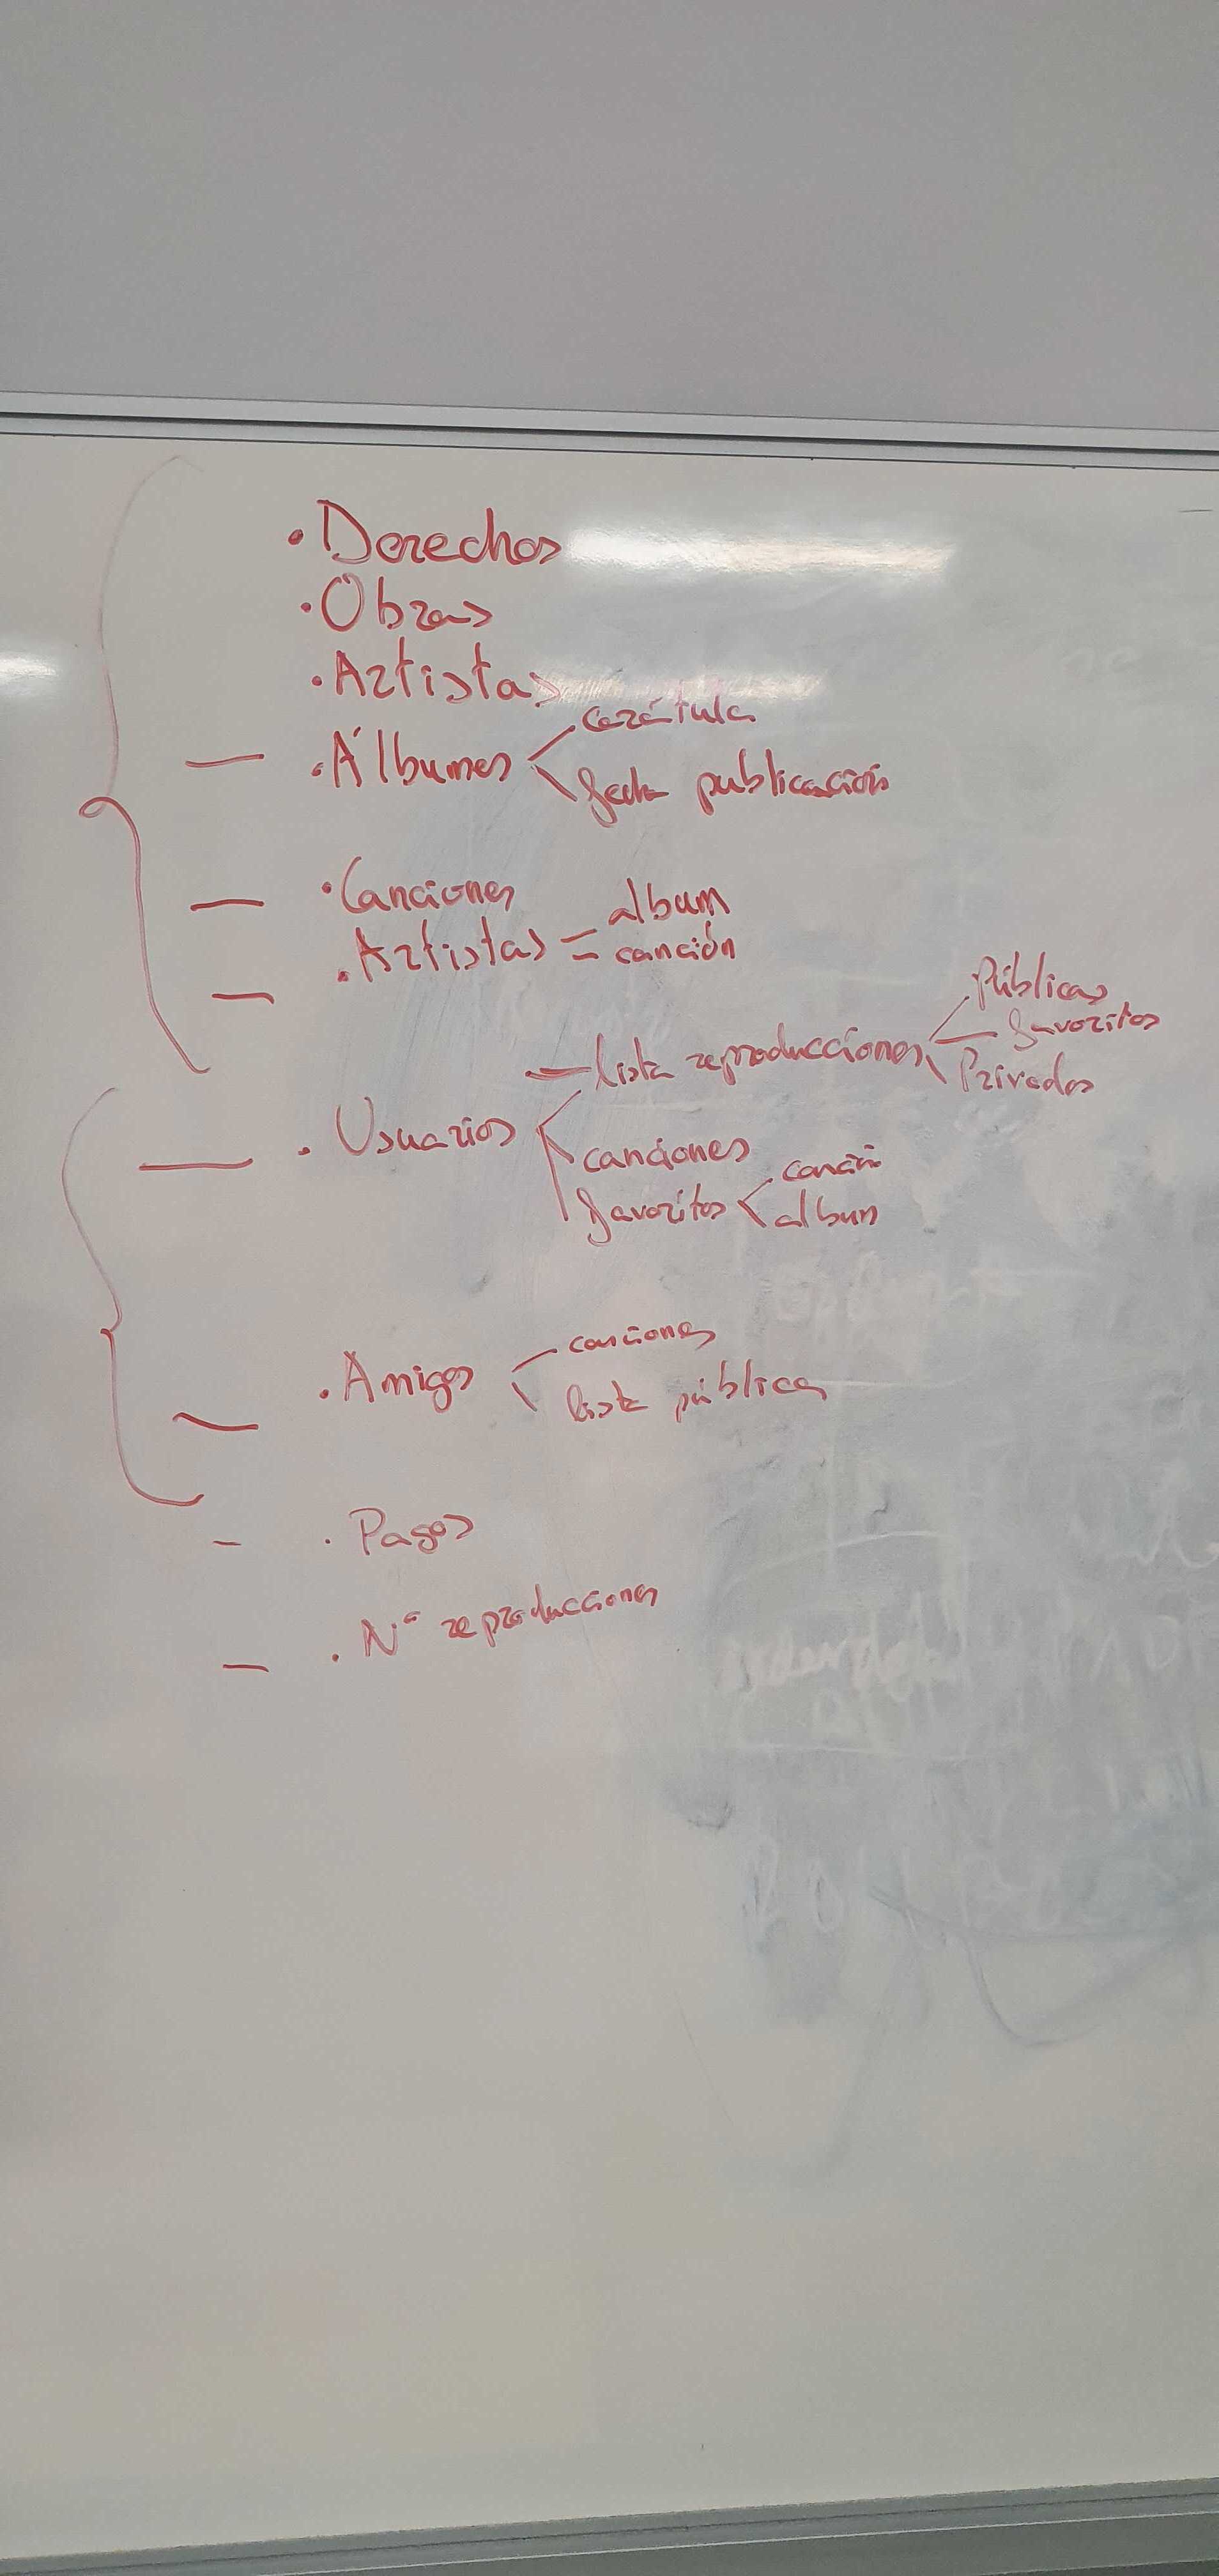 · Derechos
· Obras
· Artistas
— · Álbumes < carátula
fecha publicación
— · Canciones
— · Artistas = album
canción
— lista reproducciones < Públicas
favoritos
Privados
— · Usuarios
canciones
favoritos < canción
album
— · Amigos < canciones
lista pública
- · Pagos
— · Nº reproducciones